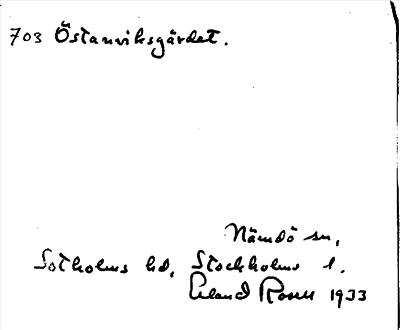 703 Östanviksgärdet.
Nämdö sn,
Sotholms hd, Stockholms l.
Erland Rosell 1933